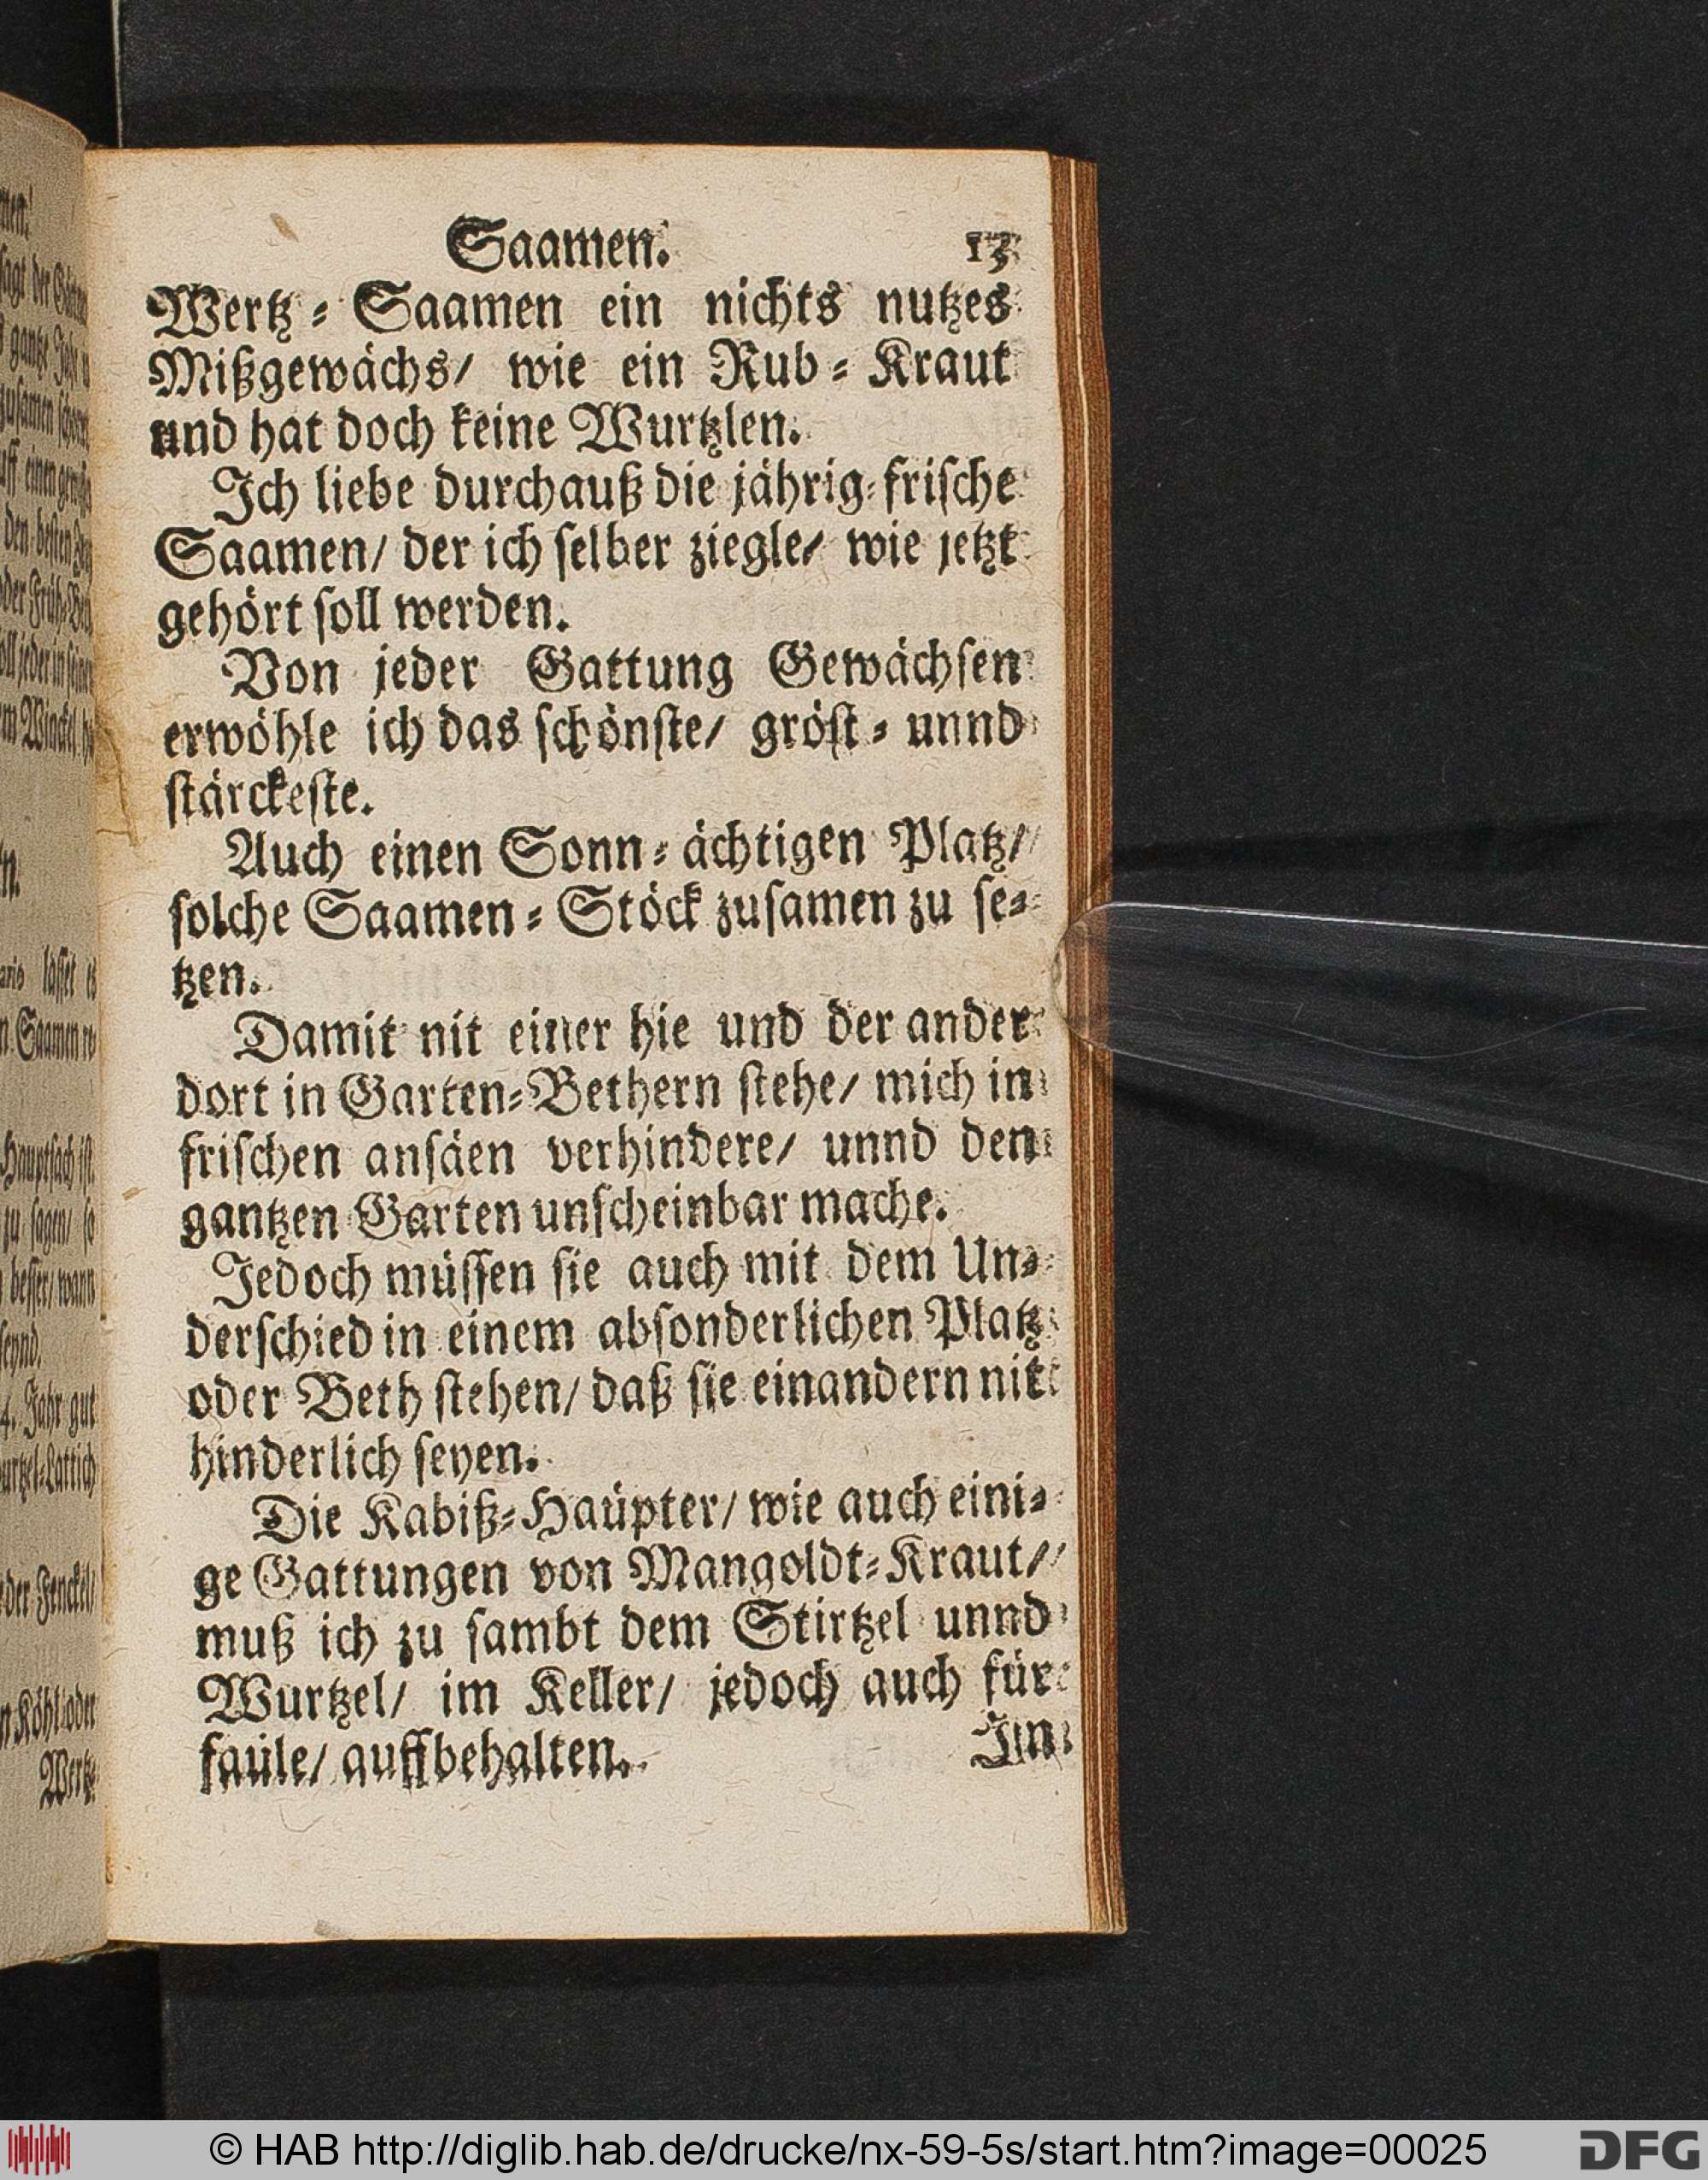 Saamen. 13
Wertz-Saamen ein nichts nutzes
Mißgewächs/ wie ein Rub-Kraut
und hat doch keine Wurtzlen.
Ich liebe durchauß die jährig-frische
Saamen/ der ich selber ziegle/ wie jetzt
gehört soll werden.
Von jeder Gattung Gewächsen
erwöhle ich das schönste/ gröst- unnd
stärckeste.
Auch einen Sonn-ächtigen Platz/
solche Saamen-Stöck zusamen zu se-
tzen.
Damit nit einer hie und der ander
dort in Garten-Bethern stehe/ mich in
frischen ansäen verhindere/ unnd den
gantzen Garten unscheinbar mache.
Jedoch müssen sie auch mit dem Un-
derschied in einem absonderlichen Platz
oder Beth stehen/ daß sie einandern nit
hinderlich seyen.
Die Kabiß-Haüpter/ wie auch eini-
ge Gattungen von Mangoldt-Kraut/
muß ich zu sambt dem Stirtzel unnd
Wurtzel/ im Keller/ jedoch auch für
faüle/ auffbehalten.
Im
© HAB http://diglib.hab.de/drucke/nx-59-5s/start.htm?image=00025
DFG